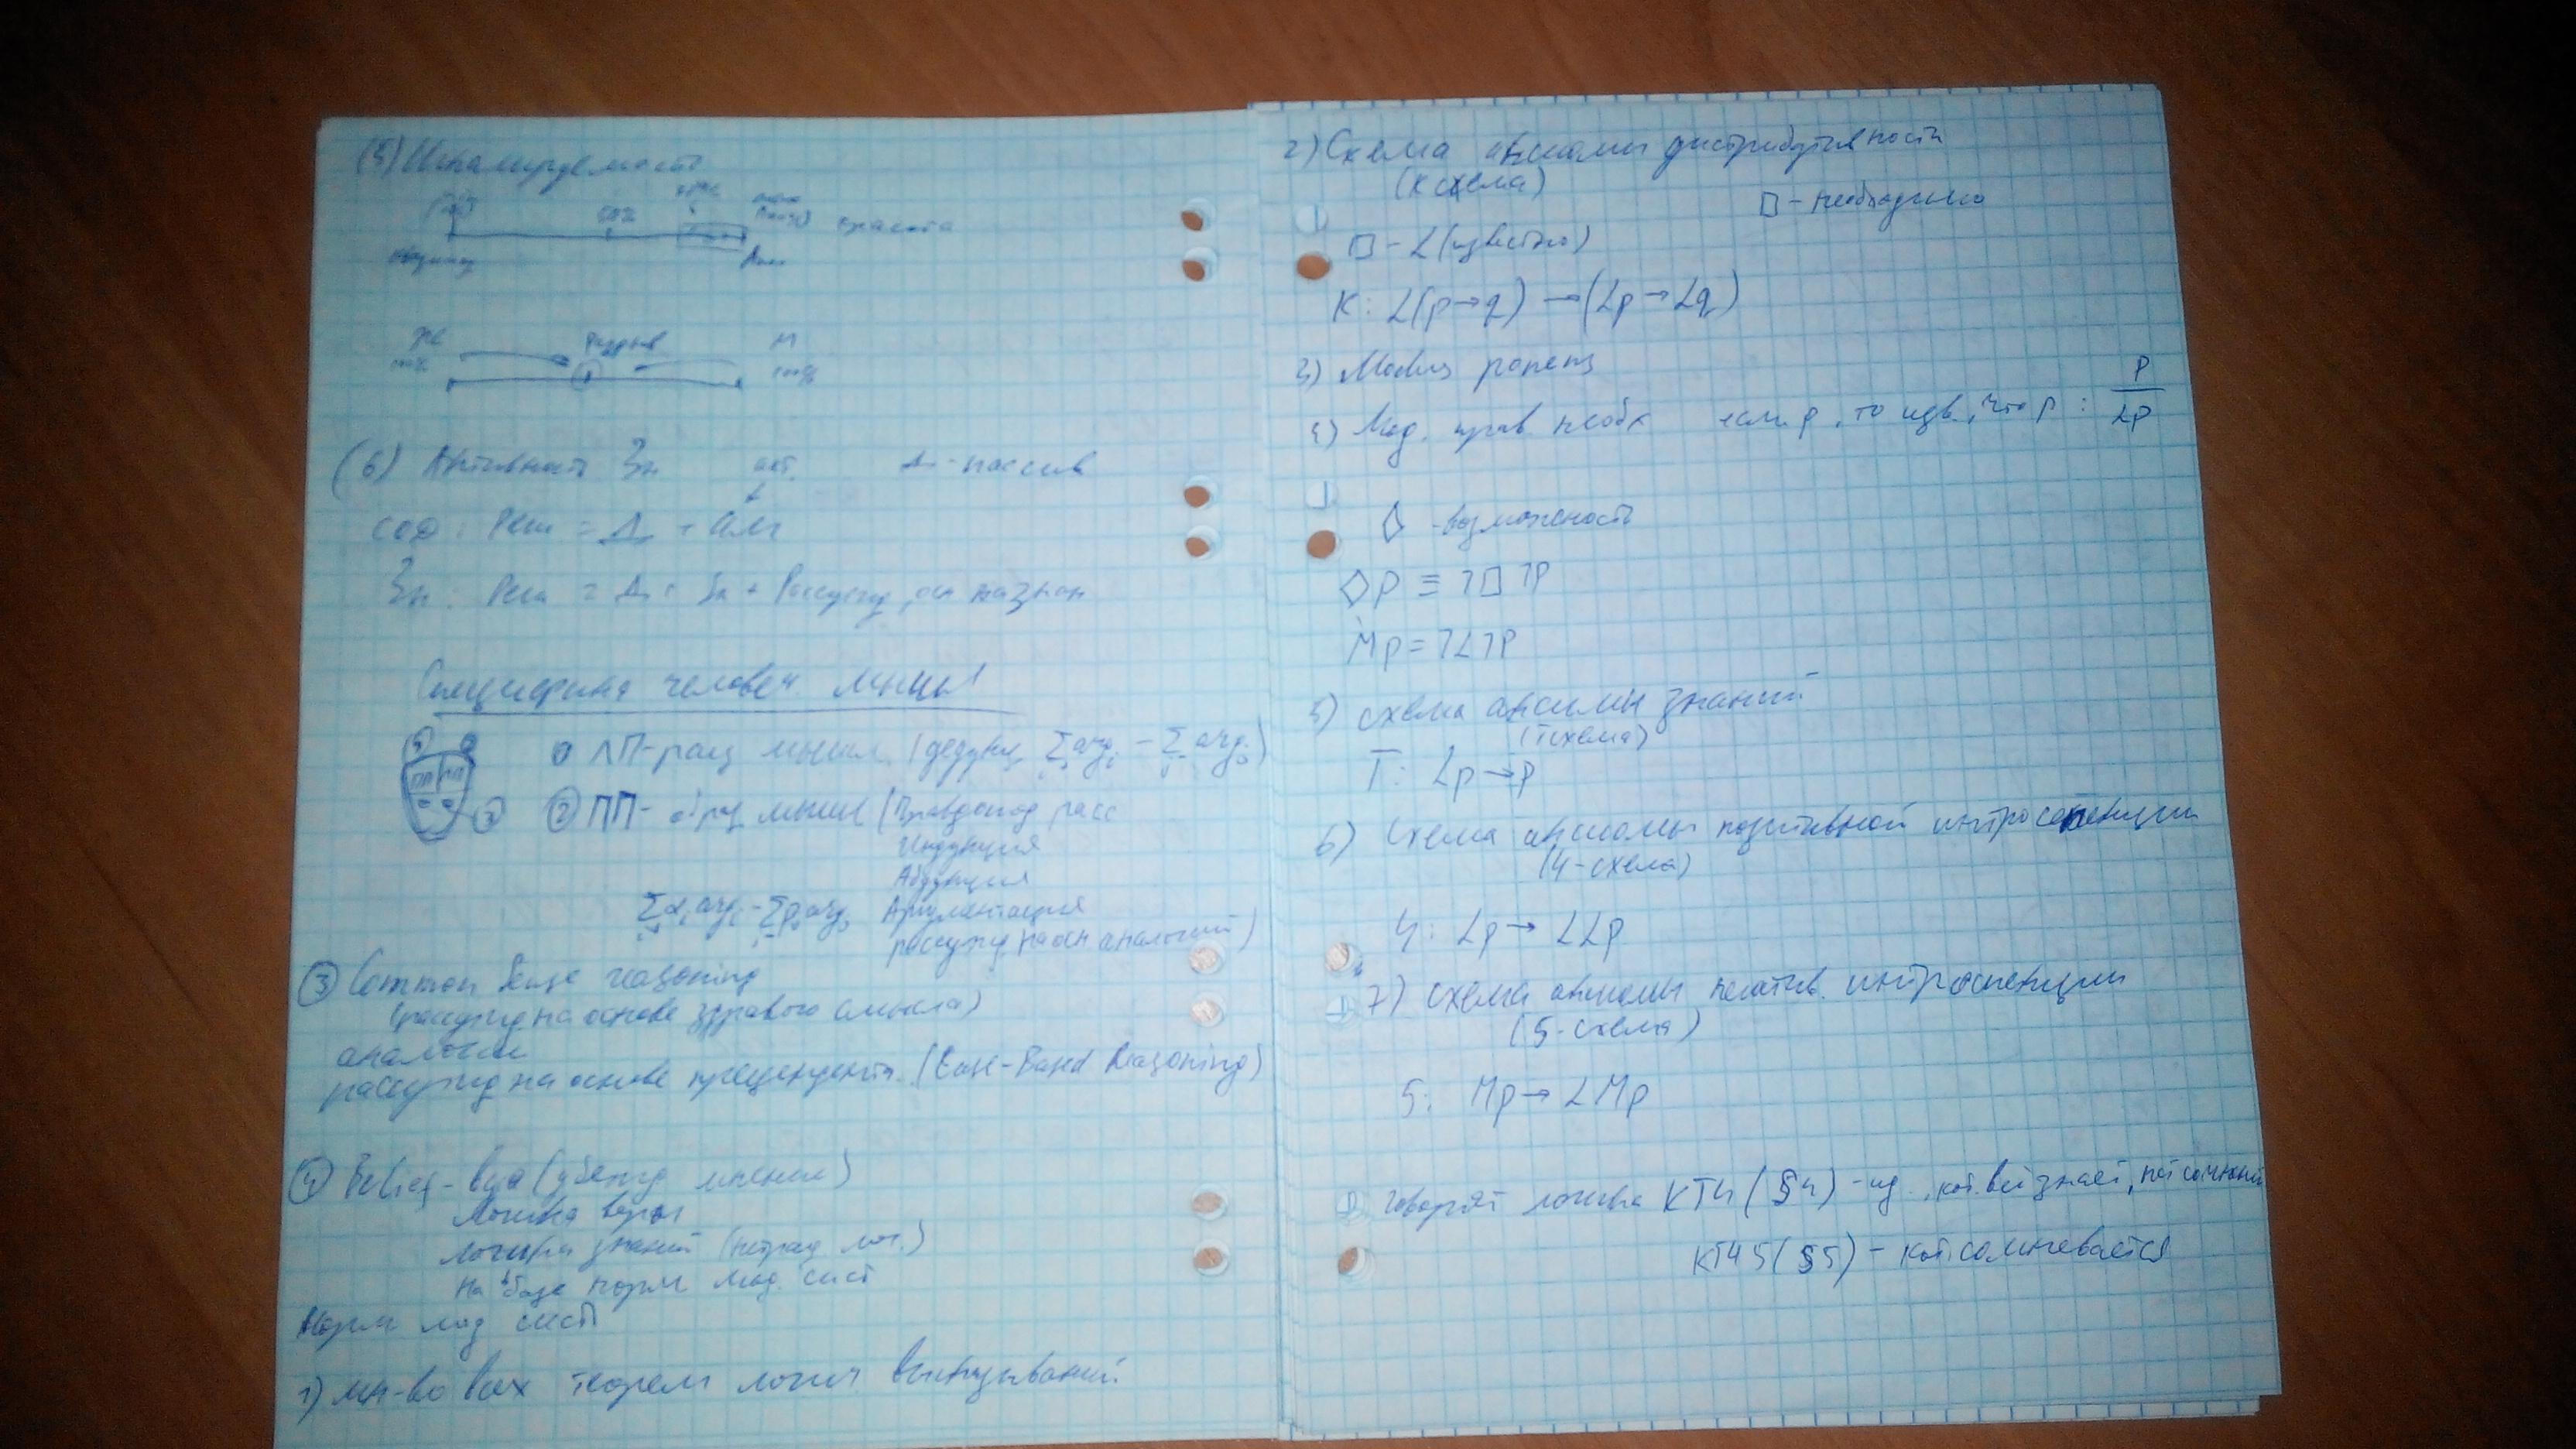 (5) Шкалируемость
50%
красота
Разрыв
М
100%
(6) Активность Зн акт. Д - пассив
СОД: Реш = Д + алг
Зн: Реш = Д + Зн + Рассужд, осн на знан
Специфика человеч. мышл
① ЛП-рац мышл. (дедукц, Σ argᵢ - Σ argⱼ)
ПП ЛП
② ПП- образ мышл (Правдопод расс
Индукция
Абдукция
Σ αᵢ argᵢ - Σ βⱼ argⱼ Аргументация
рассужд на осн аналогий)
③ Common Sense reasoning
(рассужд на основе здравого смысла)
аналогии
рассужд на основе прецендента (Case-Based Reasoning)
④ Belief - вера (убежд мнения)
Логика веры
логика знаний (нетрад лог.)
на базе норм мод. сист
Норм мод сист
1) мн-во всех теорем логик высказываний
2) Схема аксиомы дистрибутивности
(K схема)
□ - необходимо
□ - L (известно)
K: L(p→q) → (Lp→Lq)
3) Modus ponens
4) Мод. прав. необх если p, то изв., что p: P / Lp
◇ - возможность
◇p ≡ ˥□˥p
Mp = ˥L˥p
5) схема аксиомы знаний
(T схема)
T: Lp → p
6) Схема аксиомы позитивной интроспекции
(4-схема)
4: Lp → LLp
7) схема аксиомы негатив. интроспекции
(5-схема)
5: Mp → LMp
Говорят логика KT4 (S4) - ид., кот. всё знает, нет сомнений
KT45 (S5) - кот. сомневается